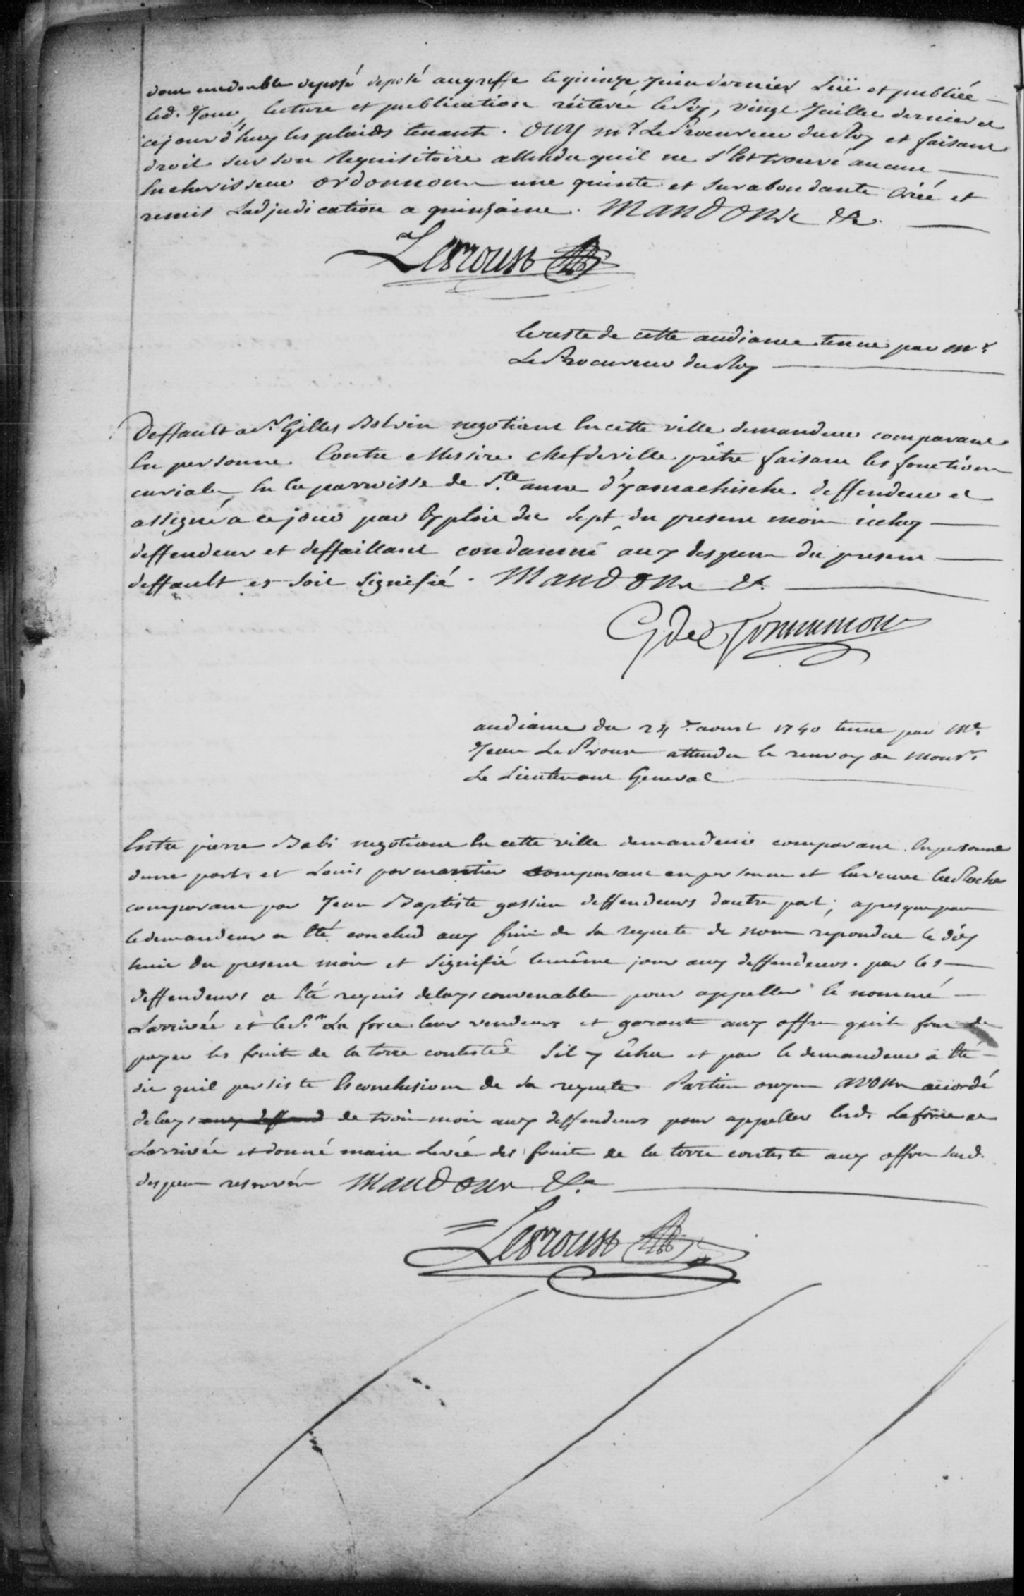 dont un double deposé deposé au greffe le quinze Juin dernier Lüe et publiée
led. Jour, lecture et publication réiteré les six, vingt Juillet dernier et
cejourd'huy les plaids tenants. Ouy Mr. Le Procureur du Roy et faisant
droit sur son Requisitoire attendu quil ne s'est trouvé aucun
Encherisseur ordonnons une quinte et surabondante Criée et
remis Ladjudication a quinzaine. Mandons &a.
LeProust
le reste de cette audiance tenue par Mr
Le Procureur du Roy
Deffault a Sr. Gilles Bolvin negotiant En cette ville demandeur comparant
En personne Contre Messire chefdeville prêtre faisant les fonctions
curiales En la parroisse de Ste. anne d'yamachiche deffendeur et
assigné a ce jour par Exploit du sept du present mois iceluy
deffendeur et deffaillant condamné aux despens du present
deffault et soit signifié. Mandons &a.
G de Tonnancour
audiance du 24e. aoust 1740 tenue par Me.
Jean Le Proust attendu le renvoy de Monsr.
Le Lieutenant General
Entre pierre Babi negotiant En cette ville demandeur comparant En personne
dune part, et Louis parmantier comparant en personne et La veuve
comparant par Jean Baptiste gastin deffendeurs dautre part; apres que par
le demandeur a Eté conclud aux fins de sa requete de nous repondue le dix
huit du present mois et signifié le même jour aux deffendeurs. par les
deffendeurs a Eté requis delays convenable pour appeller le nommé
Larrivée et le Sr. La force leur vendeurs et garant aux offre quils font de
payer les fruits de la terre contestée sil y Echet et par le demandeur a Eté
dit quil persiste Es conclusions de sa requete Parties ouyes avons accordé
delays aux deffend de trois mois aux deffendeurs pour appeller Lesd. La force et
Larrivée et donné main levée des fruits de la terre contesté aux offres susd.
despens reservés Mandons &a.
LeProust